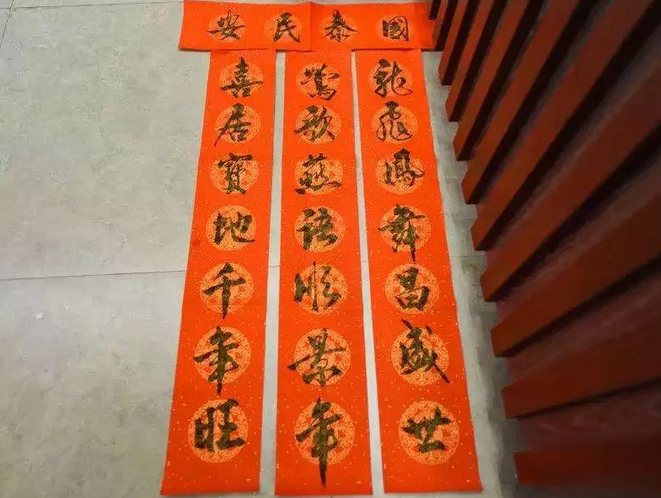 國泰民安
龍飛鳳舞昌盛世
鶯歌燕語順景年
喜居寶地千年旺